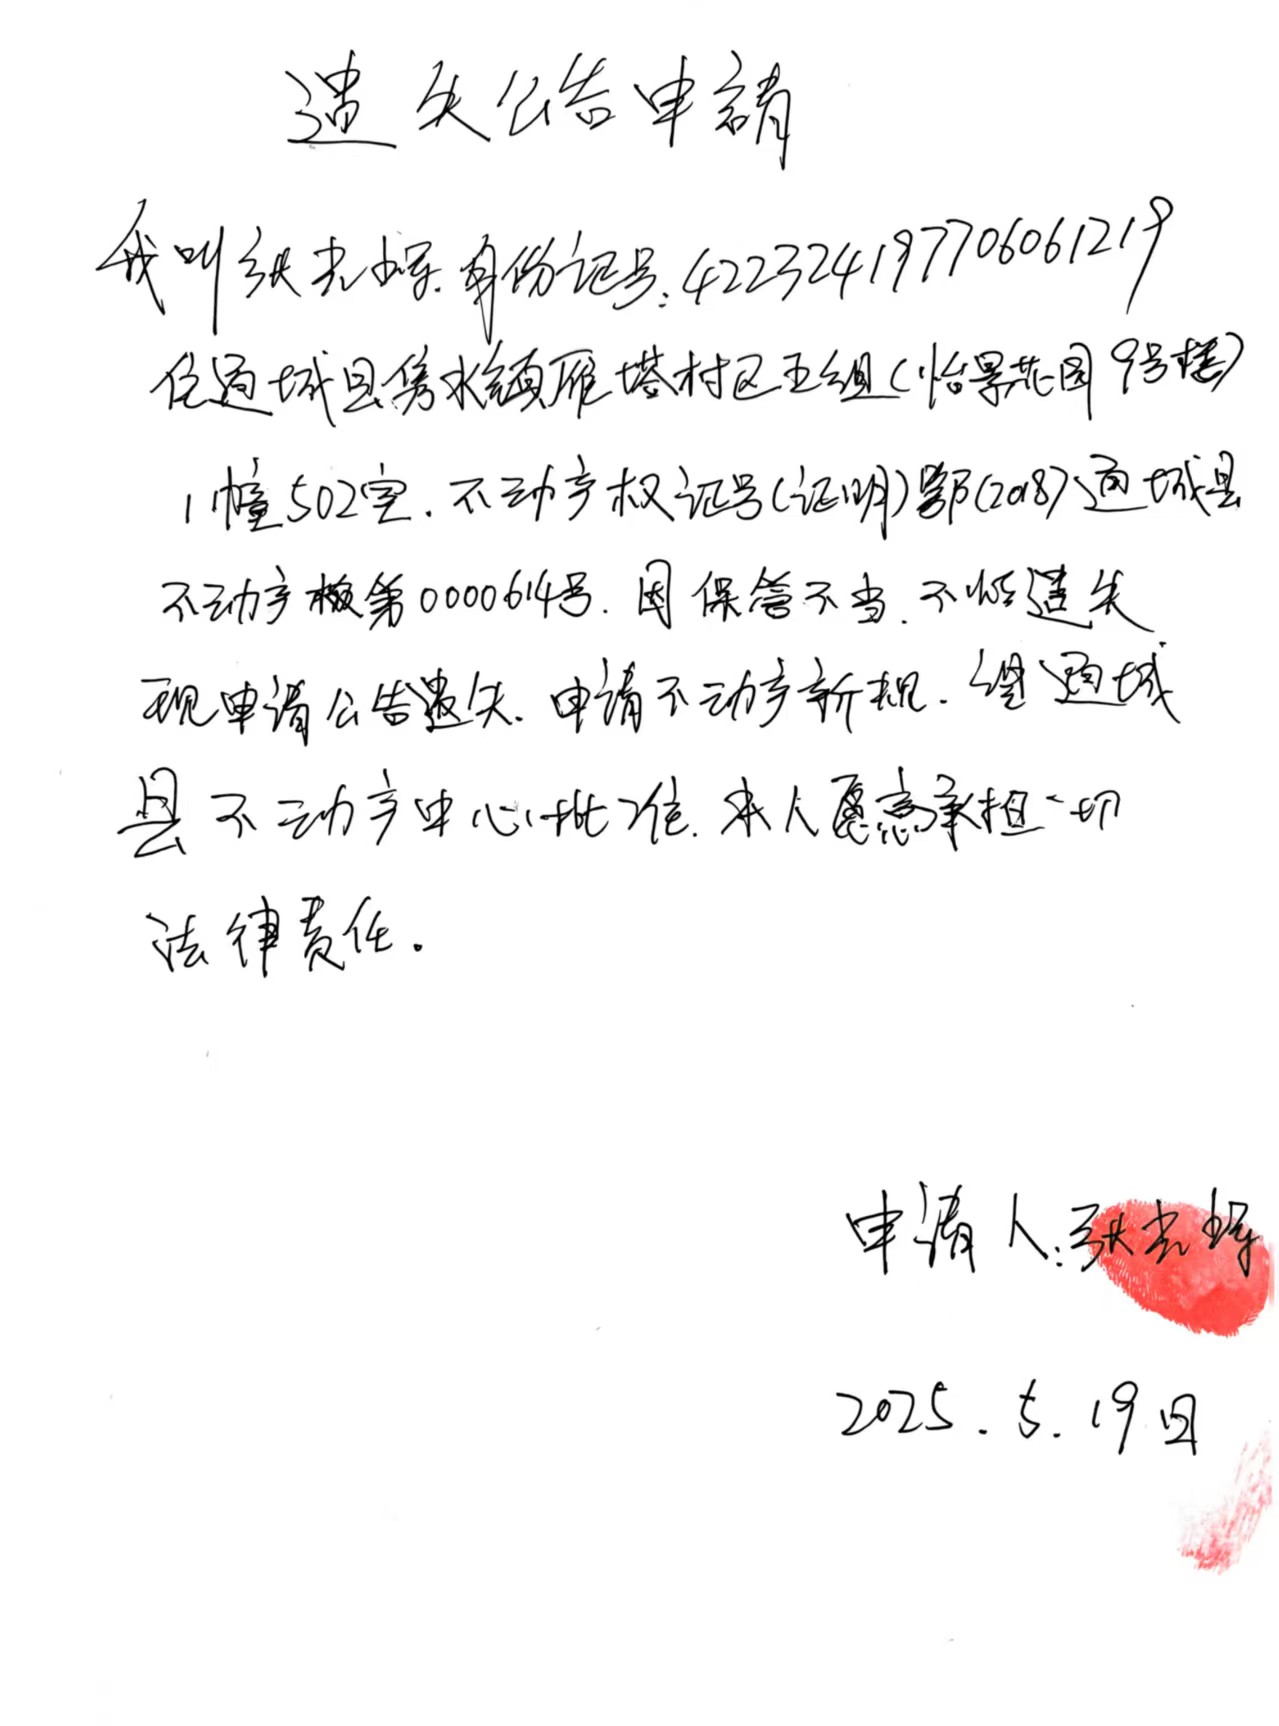 遗失公告申請
我叫张光辉.身份证号:422324197706061219
住通城县隽水镇雁塔村区五组(怡景花园9号楼)
1幢502室.不动产权证号(证明)鄂(2018)通城县
不动产权第0000614号.因保管不当.不慎遗失
现申请公告遗失.申请不动产新规.经通城
县不动产中心批准.本人愿意承担一切
法律责任.
申请人:张光辉
2025.5.19日